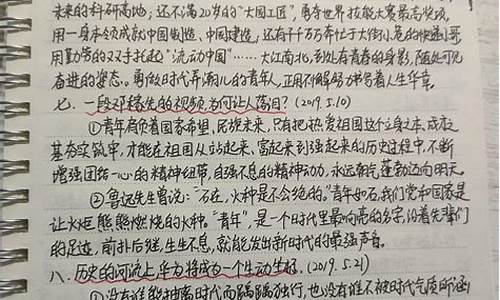 未来的科研高地；还不满20岁的“大国工匠”，勇夺世界技能大赛最高奖项，
用一身本领成就中国制造、中国建造；还有千千万万奔忙于大街小巷的快递小哥
用勤劳的双手托起“流动中国”……大江南北，到处有青春的身影，随处可见
奋进的姿态。勇做时代弄潮儿的青年人，正用不懈努力书写着人生华章。
七、一段邓稼先的视频，为何让人落泪？（2019.5.10）
①青年肩负着国家希望，民族未来，只有把热爱祖国这个立身之本、成才
基夯实筑牢，才能在祖国从站起来、富起来到强起来的历史过程中，不断
增强团结一心的精神纽带，自强不息的精神动力，永远朝气蓬勃迈向明天。
②鲁迅先生曾说：“石在，火种是不会绝的。”青年如石，我们党和国家是
让火炬熊熊燃烧的火种。“青年”，是一个时代里最响亮的名字，沿着先辈们
的足迹，前扑后继，生生不息，就能发出新时代的最强声音。
八、历史的河流上，华为将成为一个生动坐标。（2019.5.21）
①没有谁能抽离时代而踽踽独行，也没有谁不被时代气质所涵